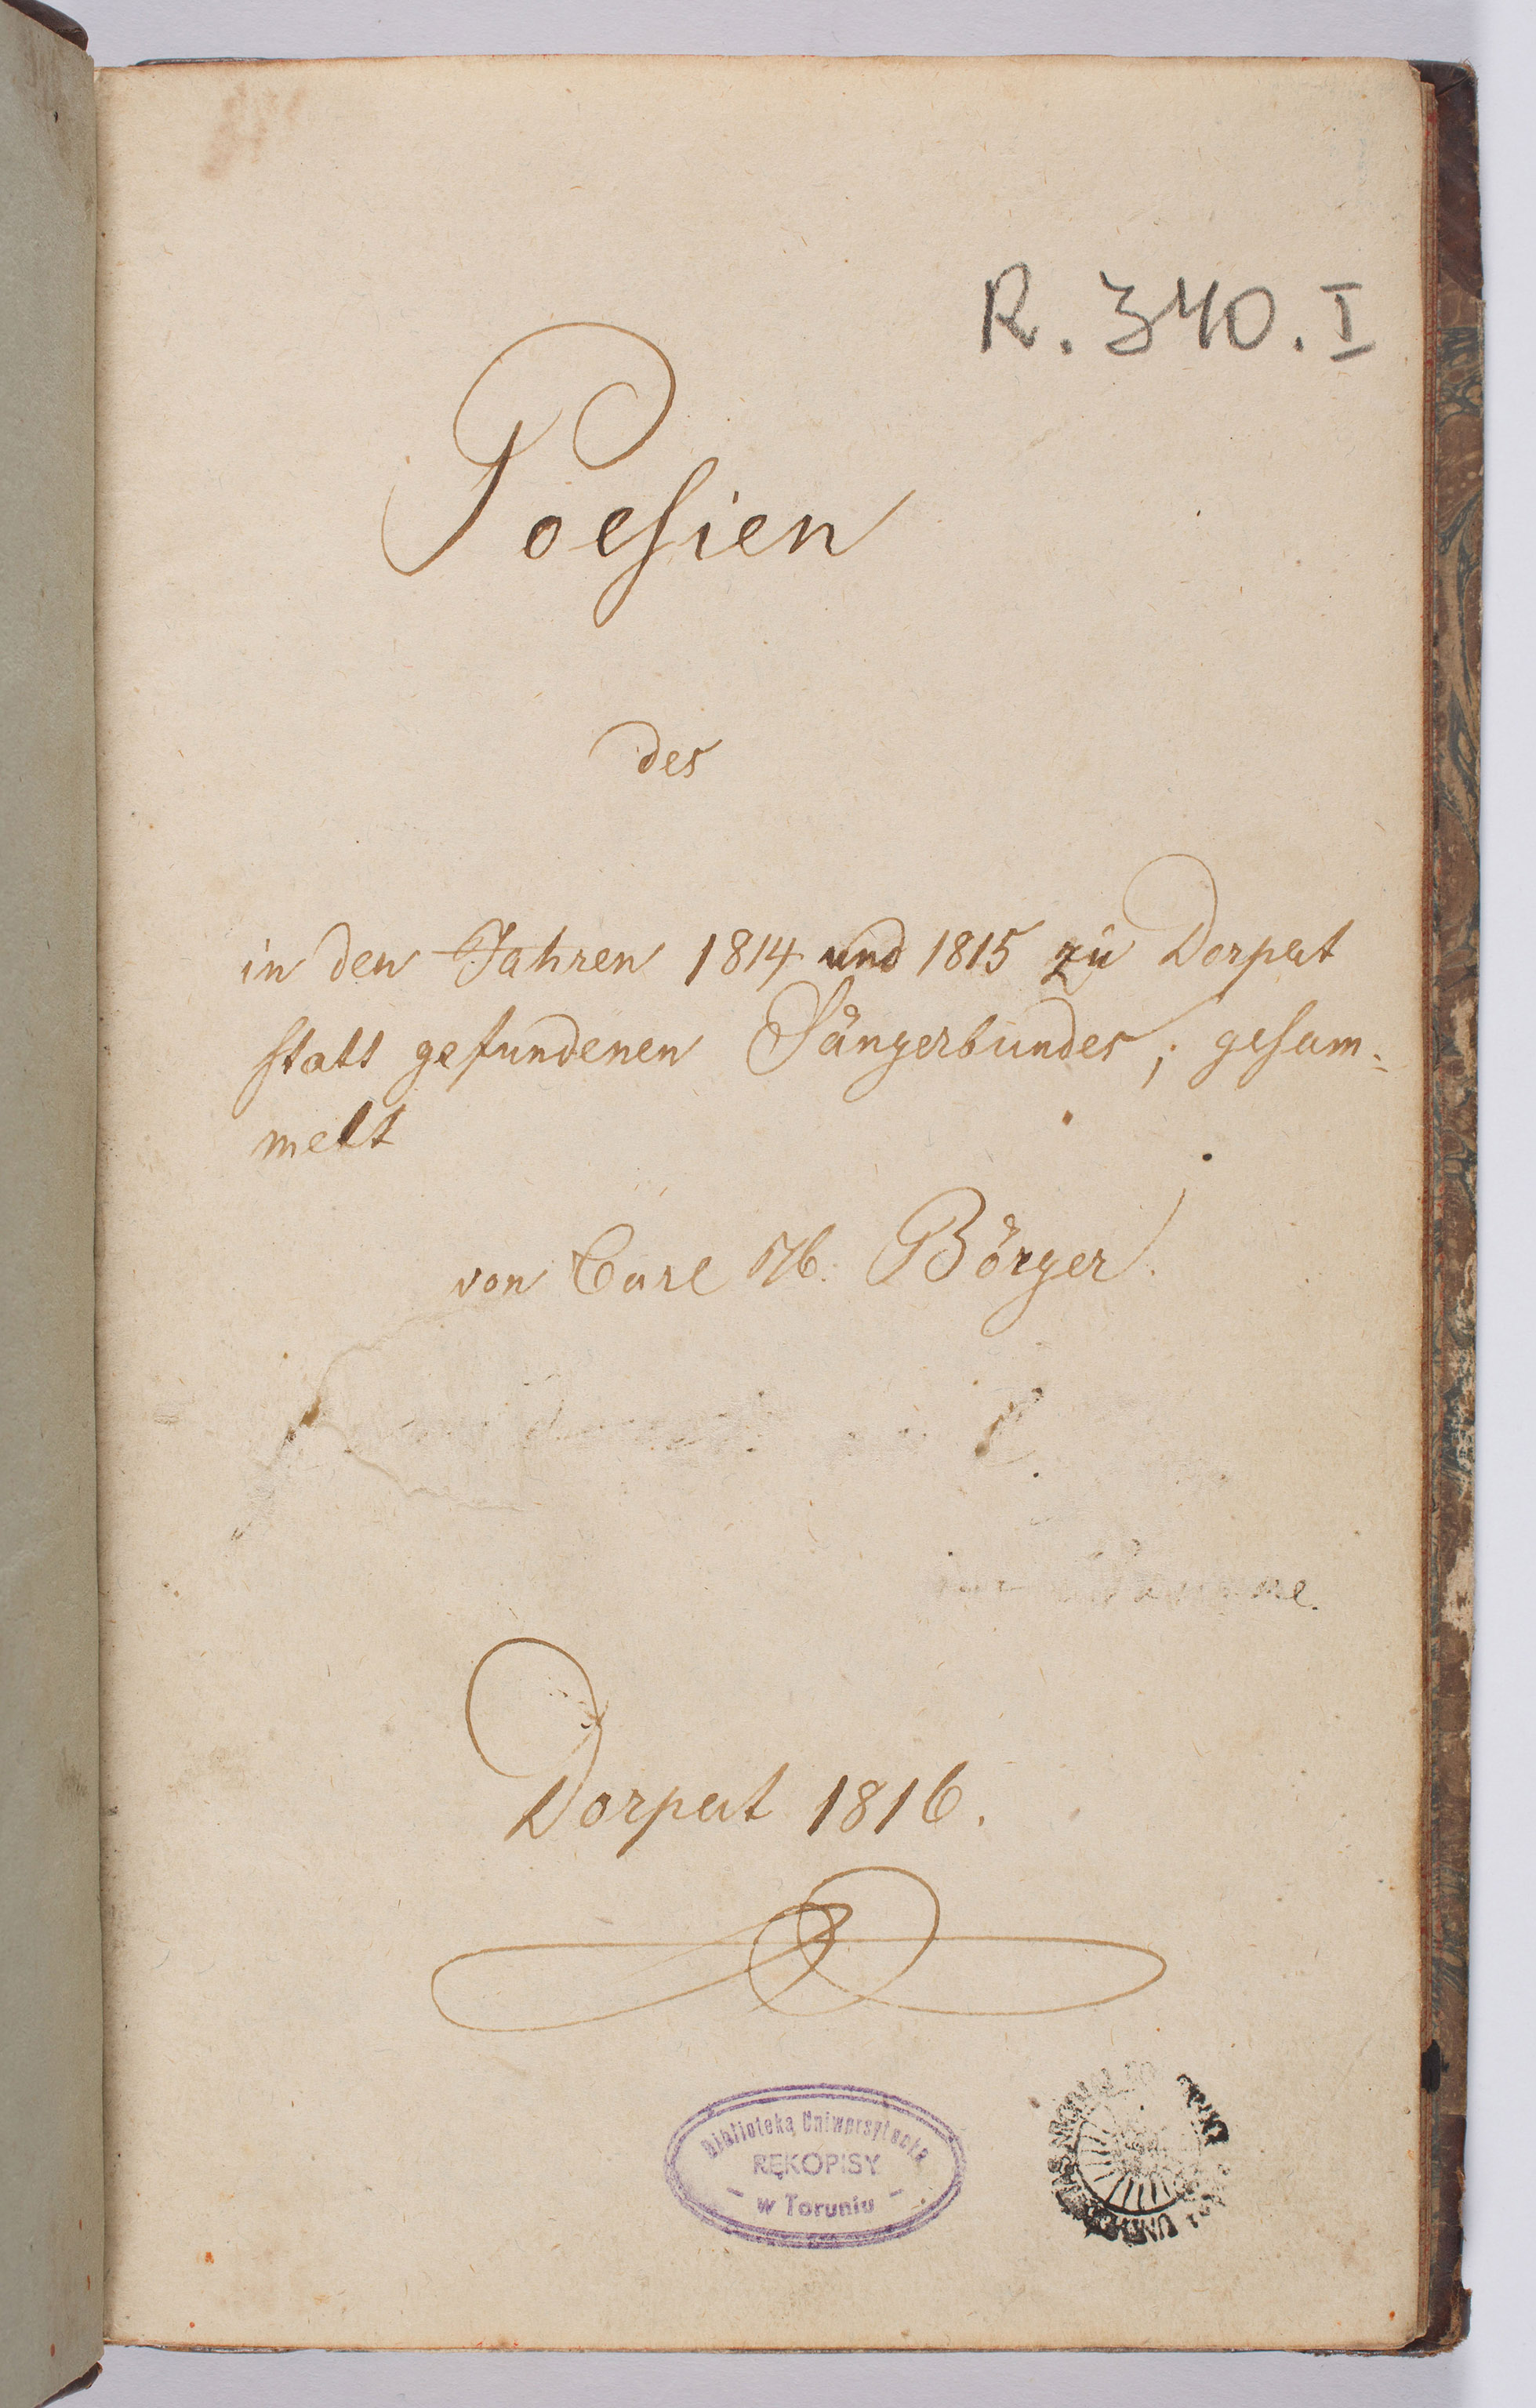 R. 340. I
Poesien
des
in den Jahren 1814 und 1815 zu Dorpat
statt gefundenen Sängerbundes, gesam-
melt
von Carl H. Börger.
Dorpat 1816.
Biblioteka Uniwersytecka
RĘKOPISY
w Toruniu